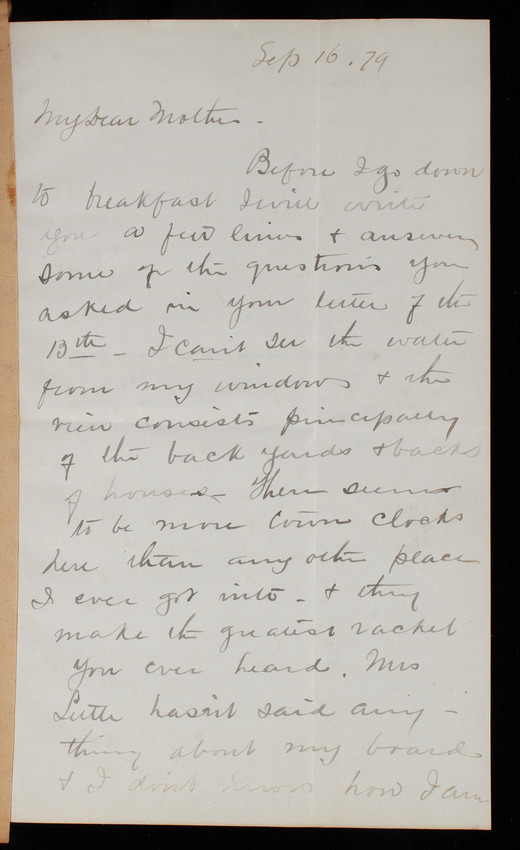 Sep 16. 79
My Dear Mother -
Before I go down
to breakfast I will write
you a few lines & answer
some of the questions you
asked in your letter of the
13th - I can't see the water
from my windows & the
view consists principally
of the back yards & backs
of houses - There seems
to be more town clocks
here than any other place
I ever got into - & they
make the greatest racket
you ever heard. Mrs
Little hasn't said any -
thing about my board
& I don't know how I am